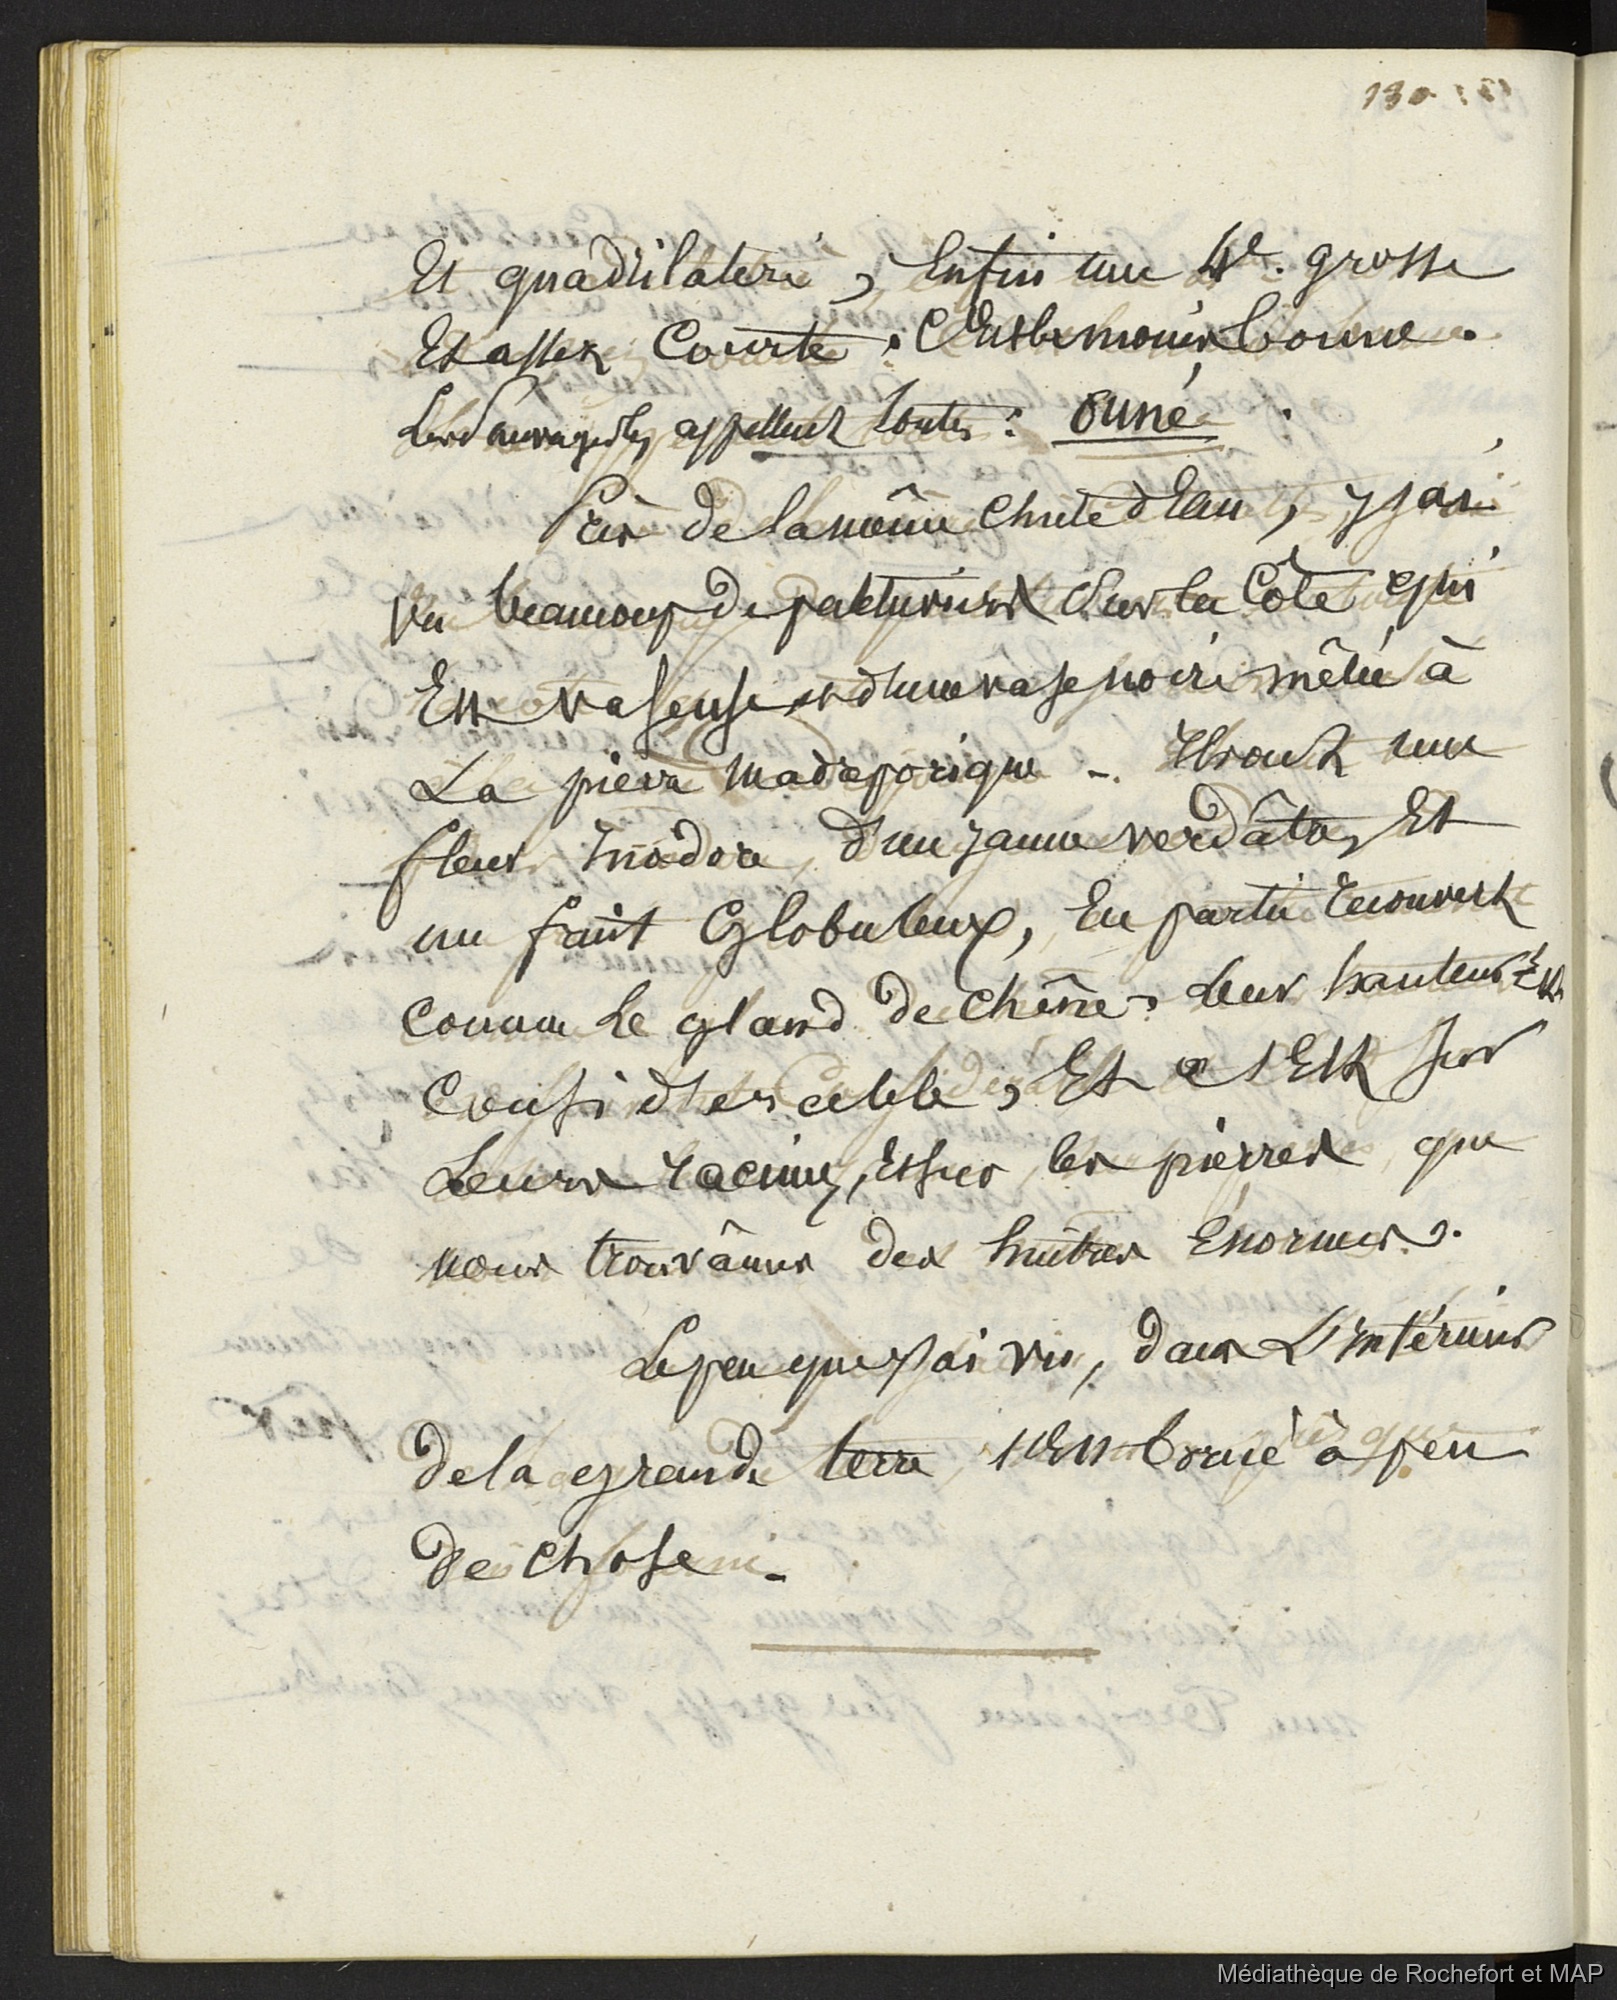 130
Et quadrilatere, Enfin une 4e. grosse
Et assez Courte; C'est la moins bonne.
Les Sauvages les appellent toutes: ouné.
Près de la même chute d'Eau, j'y ai
vu beaucoup de palétuviers Sur la Côte qui
Est vaseuse et d'une vase noire mêlée à
La pierre madréporique -. Ils ont une
fleur Inodore, d'un jaune verdâtre, Et
un fruit Globuleux, En partie recouvert
comme le gland de chêne; Leur hauteur Est
Considerable, Et c'Est sur
Leurs racines, Et sur les pierres que
nous trouvâmes des huîtres Énormes.
Le peu que j'ai vu, dans L'intérieur
de la grande terre, s'Est borné à peu
de chose.-
Médiathèque de Rochefort et MAP